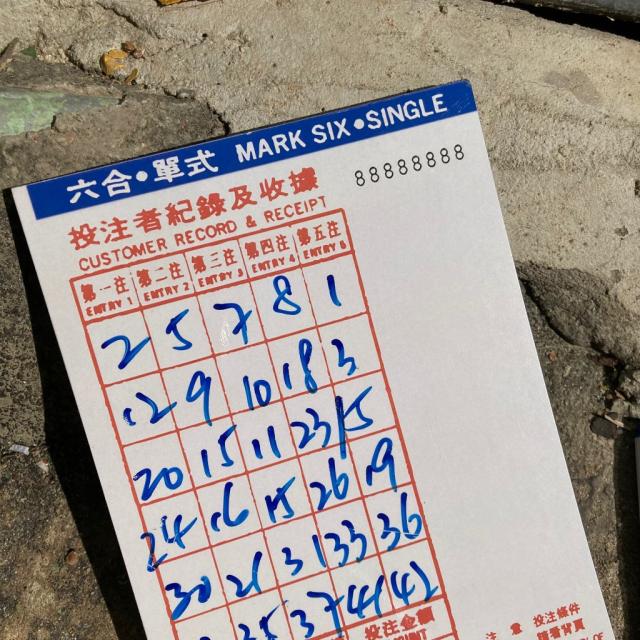 六合•單式 MARK SIX•SINGLE
投注者紀錄及收據 88888888
CUSTOMER RECORD & RECEIPT
第一注 第二注 第三注 第四注 第五注
ENTRY 1 ENTRY 2 ENTRY 3 ENTRY 4 ENTRY 5
2 5 7 8 1
12 9 10 18 3
20 15 11 23 15
24 16 15 26 19
30 21 31 33 36
35 37 41 42
投注金額
注意 投注條件